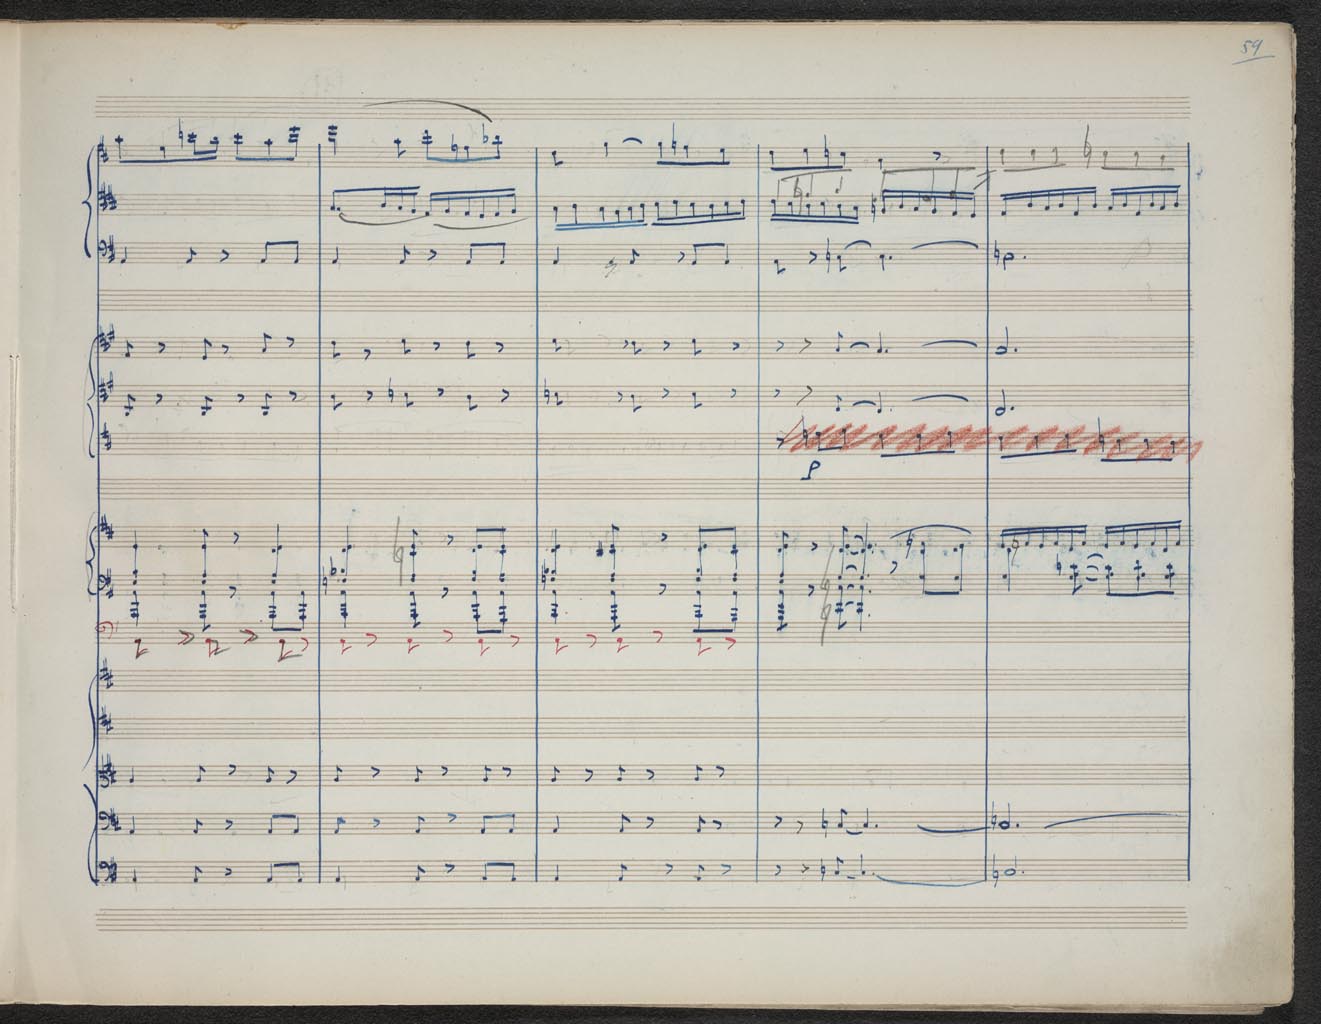 59
p